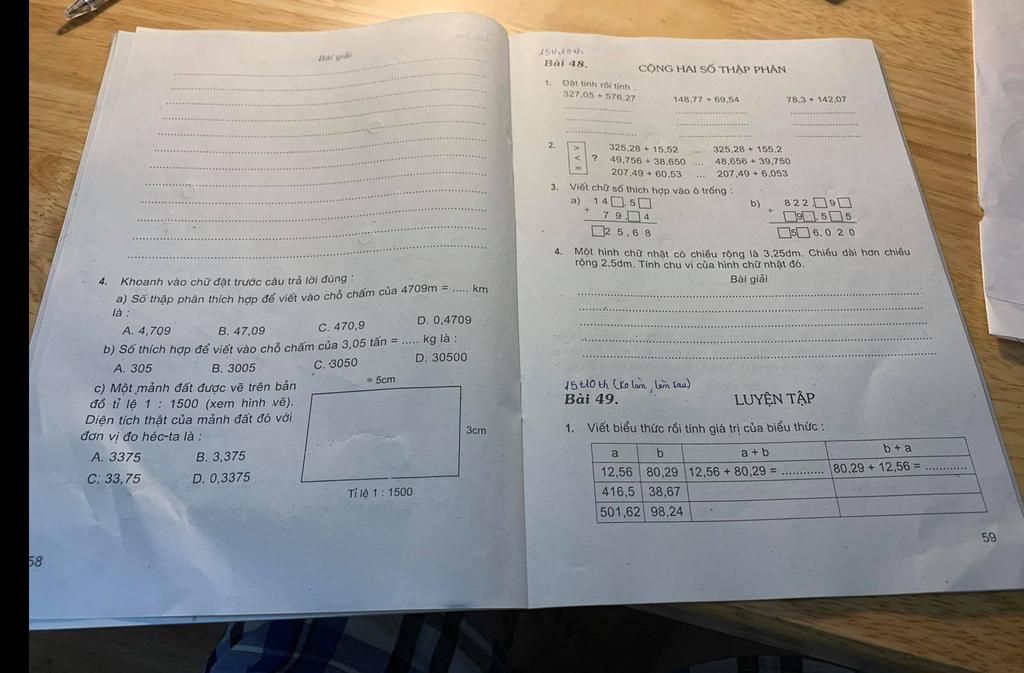 Bài giải
4. Khoanh vào chữ đặt trước câu trả lời đúng :
a) Số thập phân thích hợp để viết vào chỗ chấm của 4709m = ..... km
là :
A. 4,709 B. 47,09 C. 470,9 D. 0,4709
b) Số thích hợp để viết vào chỗ chấm của 3,05 tấn = ..... kg là :
A. 305 B. 3005 C. 3050 D. 30500
c) Một mảnh đất được vẽ trên bản
đồ tỉ lệ 1 : 1500 (xem hình vẽ).
Diện tích thật của mảnh đất đó với
đơn vị đo héc-ta là :
A. 3375 B. 3,375
C. 33,75 D. 0,3375
5cm
3cm
Tỉ lệ 1 : 1500
58
15th10th
Bài 48.
CỘNG HAI SỐ THẬP PHÂN
1. Đặt tính rồi tính :
327,05 + 576,27 148,77 + 69,54 78,3 + 142,07
2. > < = ?
325,28 + 15,52 ... 325,28 + 155,2
49,756 + 38,650 ... 48,656 + 39,750
207,49 + 60,53 ... 207,49 + 6,053
3. Viết chữ số thích hợp vào ô trống :
a) 1 4 □ , 5 □
+ 7 9 , □ 4
□ 2 5 , 6 8
b) 8 2 2 , □ 9 □
+ □ 9 □ , 5 □ 5
□ 5 □ 6 , 0 2 0
4. Một hình chữ nhật có chiều rộng là 3,25dm. Chiều dài hơn chiều
rộng 2,5dm. Tính chu vi của hình chữ nhật đó.
Bài giải
15t10th (ko làm, làm sau)
Bài 49.
LUYỆN TẬP
1. Viết biểu thức rồi tính giá trị của biểu thức :
a b a + b b + a
12,56 80,29 12,56 + 80,29 = ............ 80,29 + 12,56 = ............
416,5 38,67
501,62 98,24
59